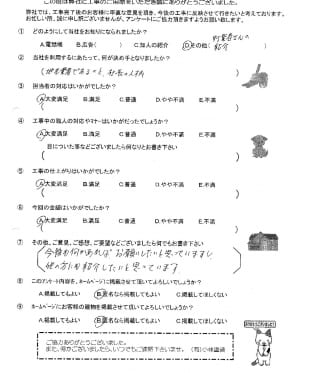 この度は弊社に工事のご用命をいただき誠にありがとうございました。
弊社では、工事完了後のお客様に率直な意見を頂き、今後の工事に反映させて行きたいと考えております。
お忙しい所、誠に申し訳ございませんが、アンケートにご協力頂きますようお願い致します。
① どのようにして当社をお知りになりましたか?
A.電話帳 B.広告( ) C.知人の紹介 D.その他( さんの紹介
② 当社を利用するにあたって、何が決め手となりましたか?
( )
③ 担当者の対応はいかがでしたか?
A.大変満足 B.満足 C.普通 D.やや不満 E.不満
④ 工事中の職人の対応やマナーはいかがだったでしょうか?
A.大変満足 B.満足 C.普通 D.やや不満 E.不満
目についた事などございましたら何なりとお書き下さい
( )
⑤ 工事の仕上がりはいかがでしたか?
A.大変満足 B.満足 C.普通 D.やや不満 E.不満
⑥ 今回の金額はいかがでしたか?
A.大変満足 B.満足 C.普通 D.やや不満 E.不満
⑦ その他、ご意見、ご感想、ご要望などございましたら何でもお書き下さい
今後も何かあればお願いしたいと思っていますし
他の方にも紹介したいと思っています
⑧ このアンケート内容を、ホームページに掲載させて頂いてよろしいでしょうか?
A.掲載してもよい B.匿名なら掲載してもよい C.掲載してほしくない
⑨ ホームページにお客様の建物を掲載させて頂いてよろしいでしょうか?
A.掲載してもよい B.匿名なら掲載してもよい C.掲載してほしくない
ご協力ありがとうございました。
また、何かございましたら、いつでもご連絡下さいませ。(有)小林塗装